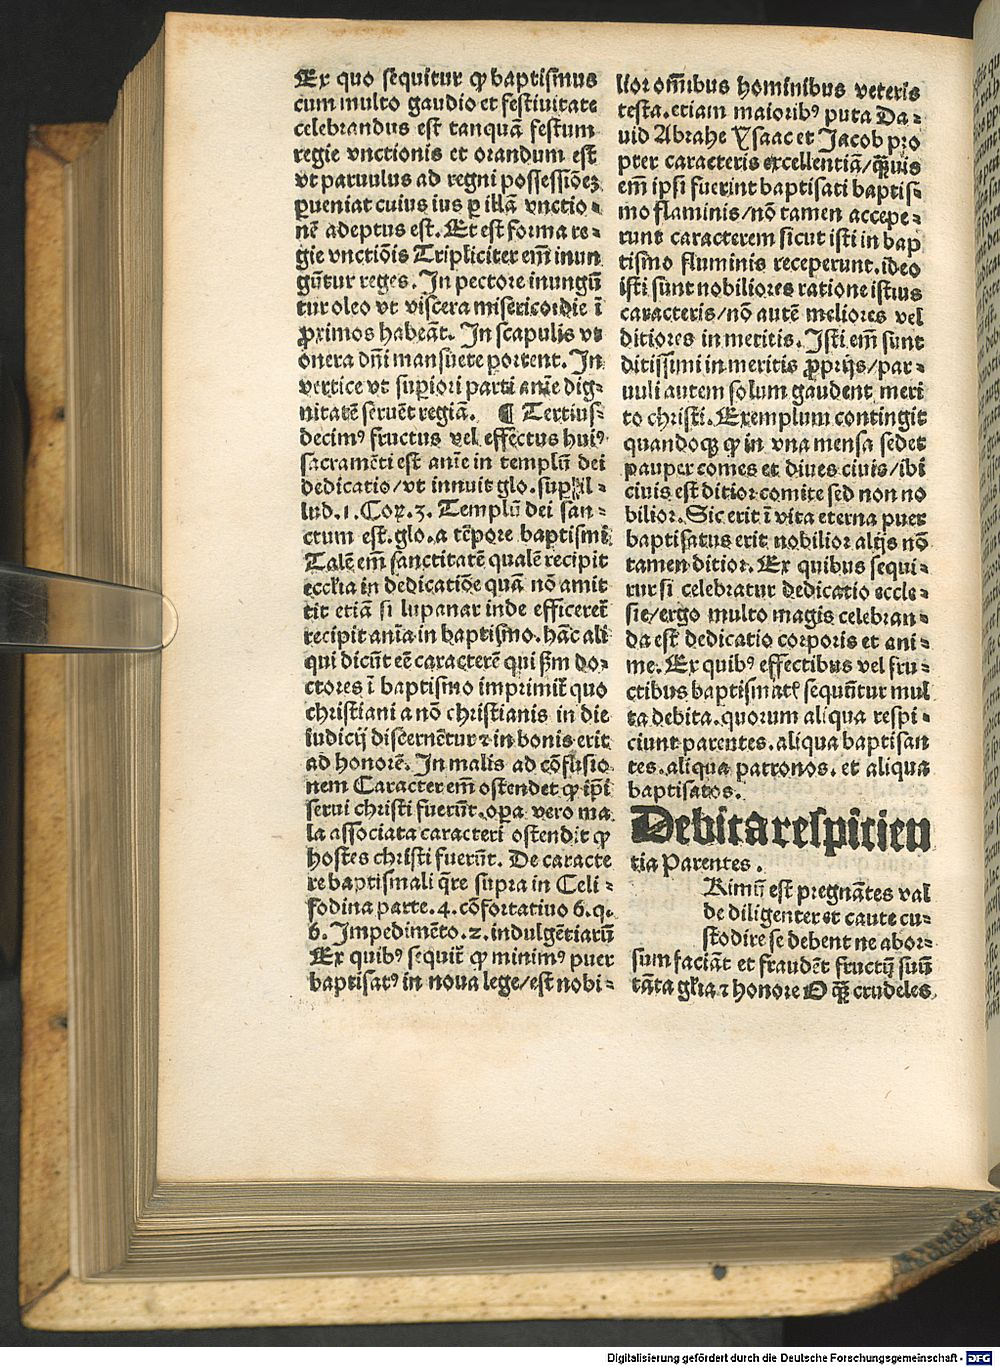 Ex quo sequitur ꝙ baptismus
cum multo gaudio et festiuitate
celebrandus est tanquã festum
regie vnctionis et orandum est
vt paruulus ad regni possessiõeʒ
ꝑueniat cuius ius ꝑ illã vnctio-
nẽ adeptus est. Et est forma re-
gie vnctiõis Tripliciter em̃ inun
gũtur reges. In pectore inungũ
tur oleo vt viscera misericordie ĩ
ꝓximos habeãt. In scapulis vt
onera dñi mansuete portent. In
vertice vt suꝑiori parti aĩe dig-
nitatẽ seruẽt regiã. ¶ Tertius-
decimꝰ fructus vel effectus huiꝰ
sacramẽti est aĩe in templũ dei
dedicatio/vt innuit glo. suꝑ il-
lud. 1. Cor. 3. Templũ dei san-
ctum est. glo. a tẽpore baptismi
Talẽ em̃ sanctitatẽ qualẽ recipit
eccl̃ia in dedicatiõe quã nõ amit
tit etiã si lupanar inde efficeret̃
recipit aĩa in baptismo. hãc ali
qui dicũt eẽ caracterẽ qui ẞm do-
ctores ĩ baptismo imprimit̃ quo
christiani a nõ christianis in die
iudicij discernẽtur ⁊ in bonis erit
ad honorẽ. In malis ad cõfusio
nem Caracter em̃ ostendet ꝙ ip̃i
serui christi fuerũt. oꝑa vero ma
la associata caracteri ostendit ꝙ
hostes christi fuerũt. De caracte
re baptismali q̃re supra in Celi-
fodina parte. 4. cõfortatiuo 6. q.
6. Impedimẽto. 2. indulgẽtiarũ
Ex quibꝰ sequit̃ ꝙ minimꝰ puer
baptisatꝰ in noua lege/est nobi-
lior om̃ibus hominibus veteris
testa. etiam maioribꝰ puta Da-
uid Abrahe Ysaac et Jacob pro
pter caracteris excellentiã/q̃uis
em̃ ipsi fuerint baptisati baptis-
mo flaminis/nõ tamen accepe-
runt caracterem sicut isti in bap
tismo fluminis receperunt. ideo
isti sunt nobiliores ratione istius
caracteris/nõ autẽ meliores vel
ditiores in meritis. Isti em̃ sunt
ditissimi in meritis ꝓprijs/par-
uuli autem solum gaudent meri
to christi. Exemplum contingit
quandoqꝫ ꝙ in vna mensa sedet
pauper comes et diues ciuis/ibi
ciuis est ditior comite sed non no
bilior. Sic erit ĩ vita eterna puer
baptisatus erit nobilior alijs nõ
tamen ditior. Ex quibus sequi-
tur si celebratur dedicatio eccle-
sie/ergo multo magis celebran-
da est dedicatio corporis et ani-
me. Ex quibꝰ effectibus vel fru-
ctibus baptismatꝭ sequũtur mul
ta debita. quorum aliqua respi-
ciunt parentes. aliqua baptisan
tes. aliqua patronos. et aliqua
baptisatos.
Debita respicien
tia Parentes.
Rimũ est pregnãtes val
de diligenter et caute cu-
stodire se debent ne abor-
sum faciãt et fraudẽt fructũ suũ
tãta gl̃ia ⁊ honore O q̃ꝫ crudeles
Digitalisierung gefördert durch die Deutsche Forschungsgemeinschaft - DFG